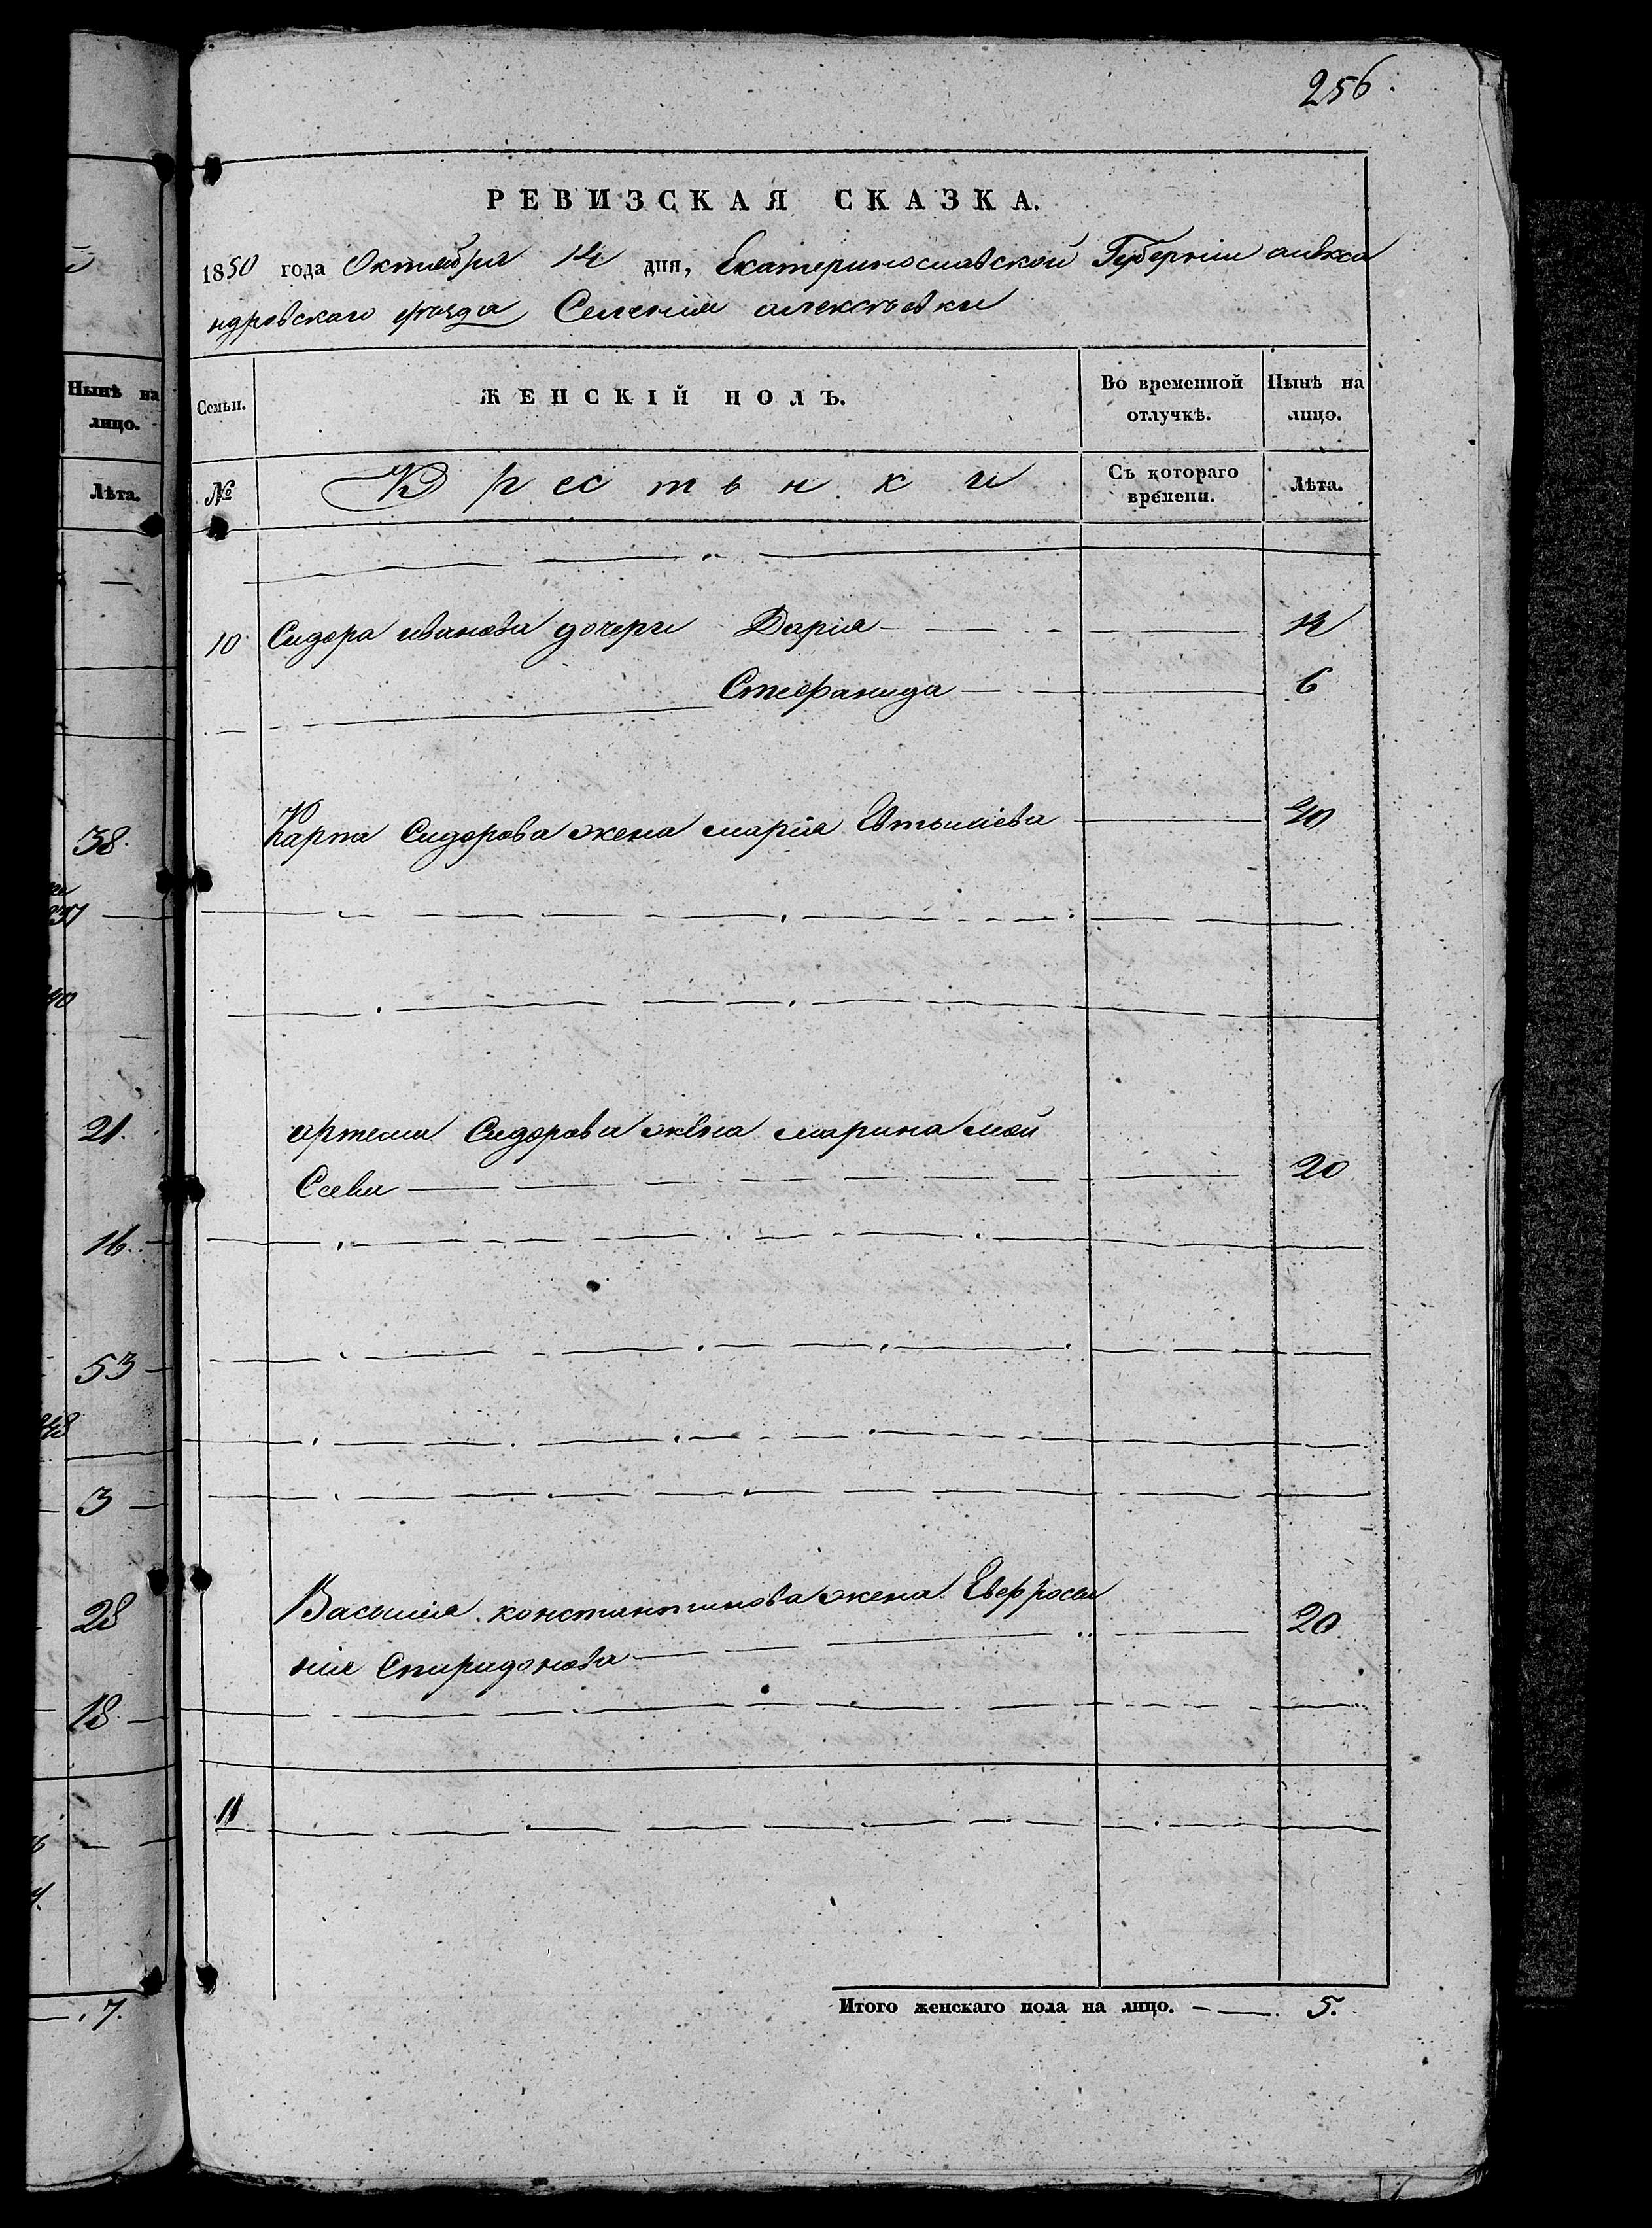 256.
РЕВИЗСКАЯ СКАЗКА.
1850 года Октября 14 дня, Екатеринославской Губернии алекса
ндровскаго уѣзда Селения алексѣевки
Нынѣ на
лицо.
Лѣта.
Семьи.
ЖЕНСКІЙ ПОЛЪ.
Во временной
отлучкѣ.
Нынѣ на
лицо.
№
Крестьнки
Съ котораго
времени.
Лѣта.
10 Сидора иванова дочери Дарія
Стефанида 6
Карпа Сидорова жена марія 40
артема Сидорова жена марина мои
Сеева 20
Василия константинова жена Евфросы
ния Спиридонова 20
11
Итого женскаго пола на лицо. 5.
38.
21.
16.
53
3
28
18
7.